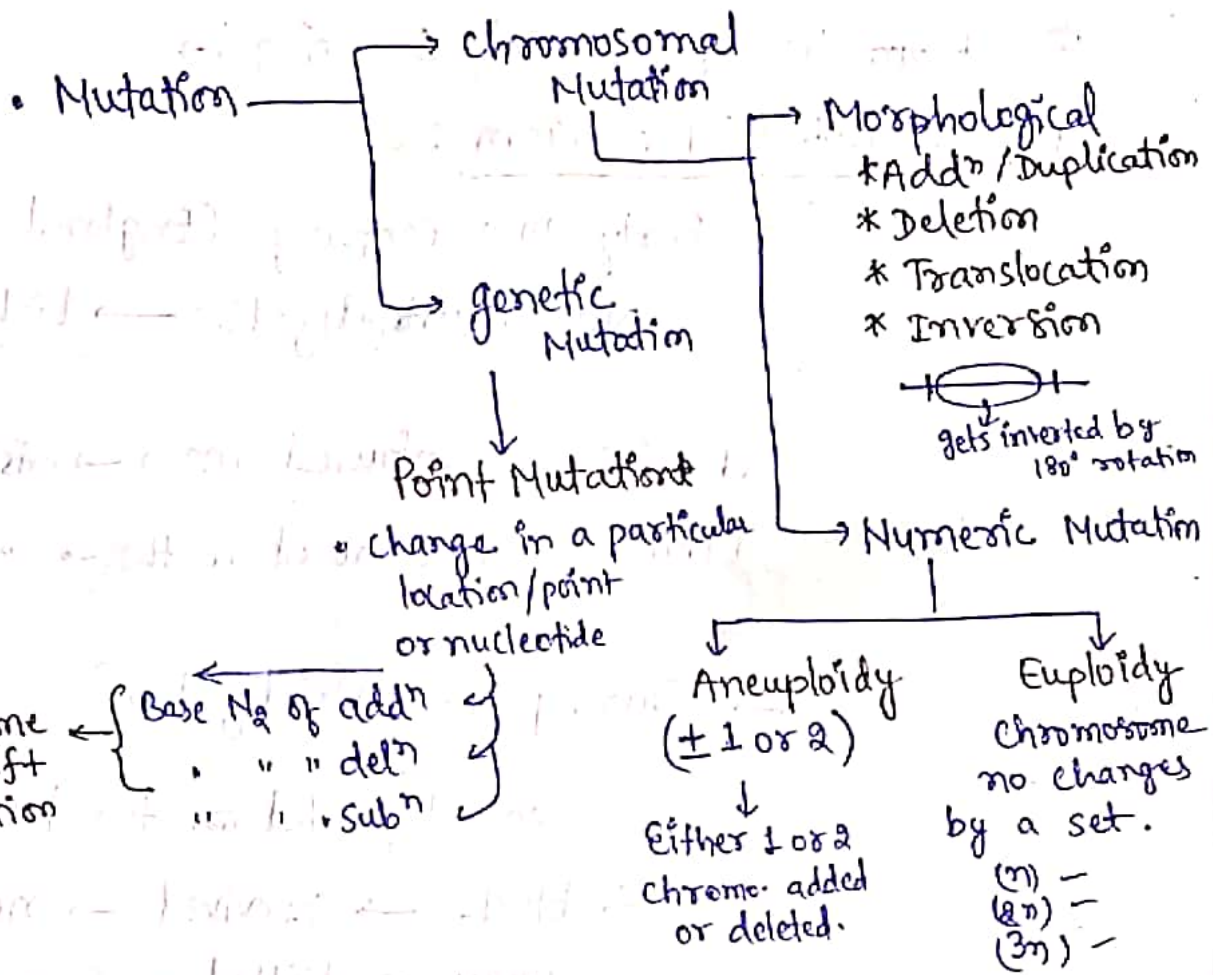 • Mutation
Chromosomal
Mutation
Morphological
* Addⁿ / Duplication
* Deletion
* Translocation
* Inversion
gets inverted by
180° rotation
genetic
Mutation
Point Mutation
• change in a particular
location/point
or nucleotide
Base N2 of addⁿ
" " " delⁿ
" " " subⁿ
me
ft
ion
Numeric Mutation
Aneuploidy
(± 1 or 2)
Either 1 or 2
chromo. added
or deleted.
Euploidy
Chromosome
no changes
by a set.
(n) –
(2n) –
(3n) –